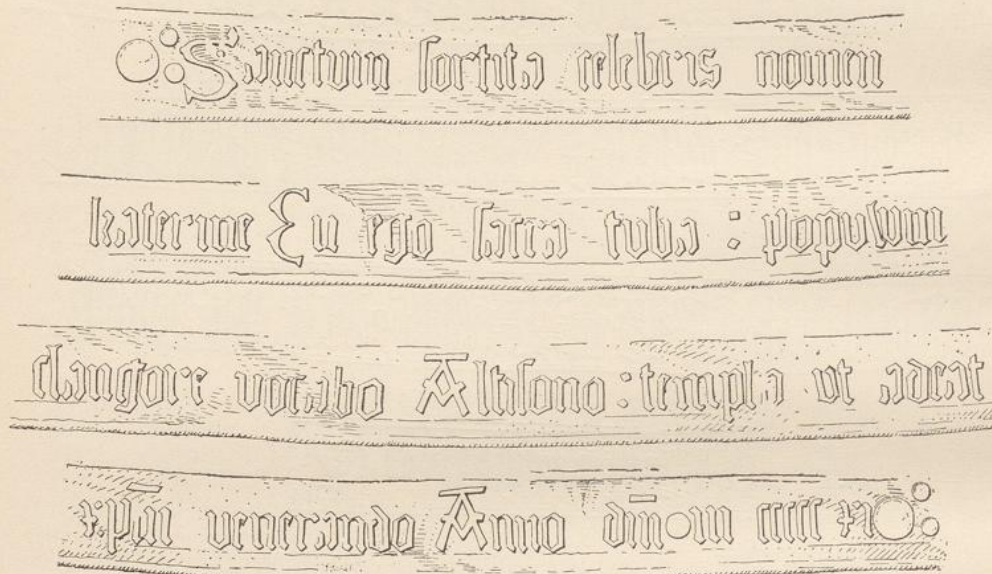 Sanctum sortita celebris nomen
katerine En ego sacra tuba : populum
clangore vocabo Altisono : templa vt adeat
xp̄m venerando Anno dn̄i m ccccc x